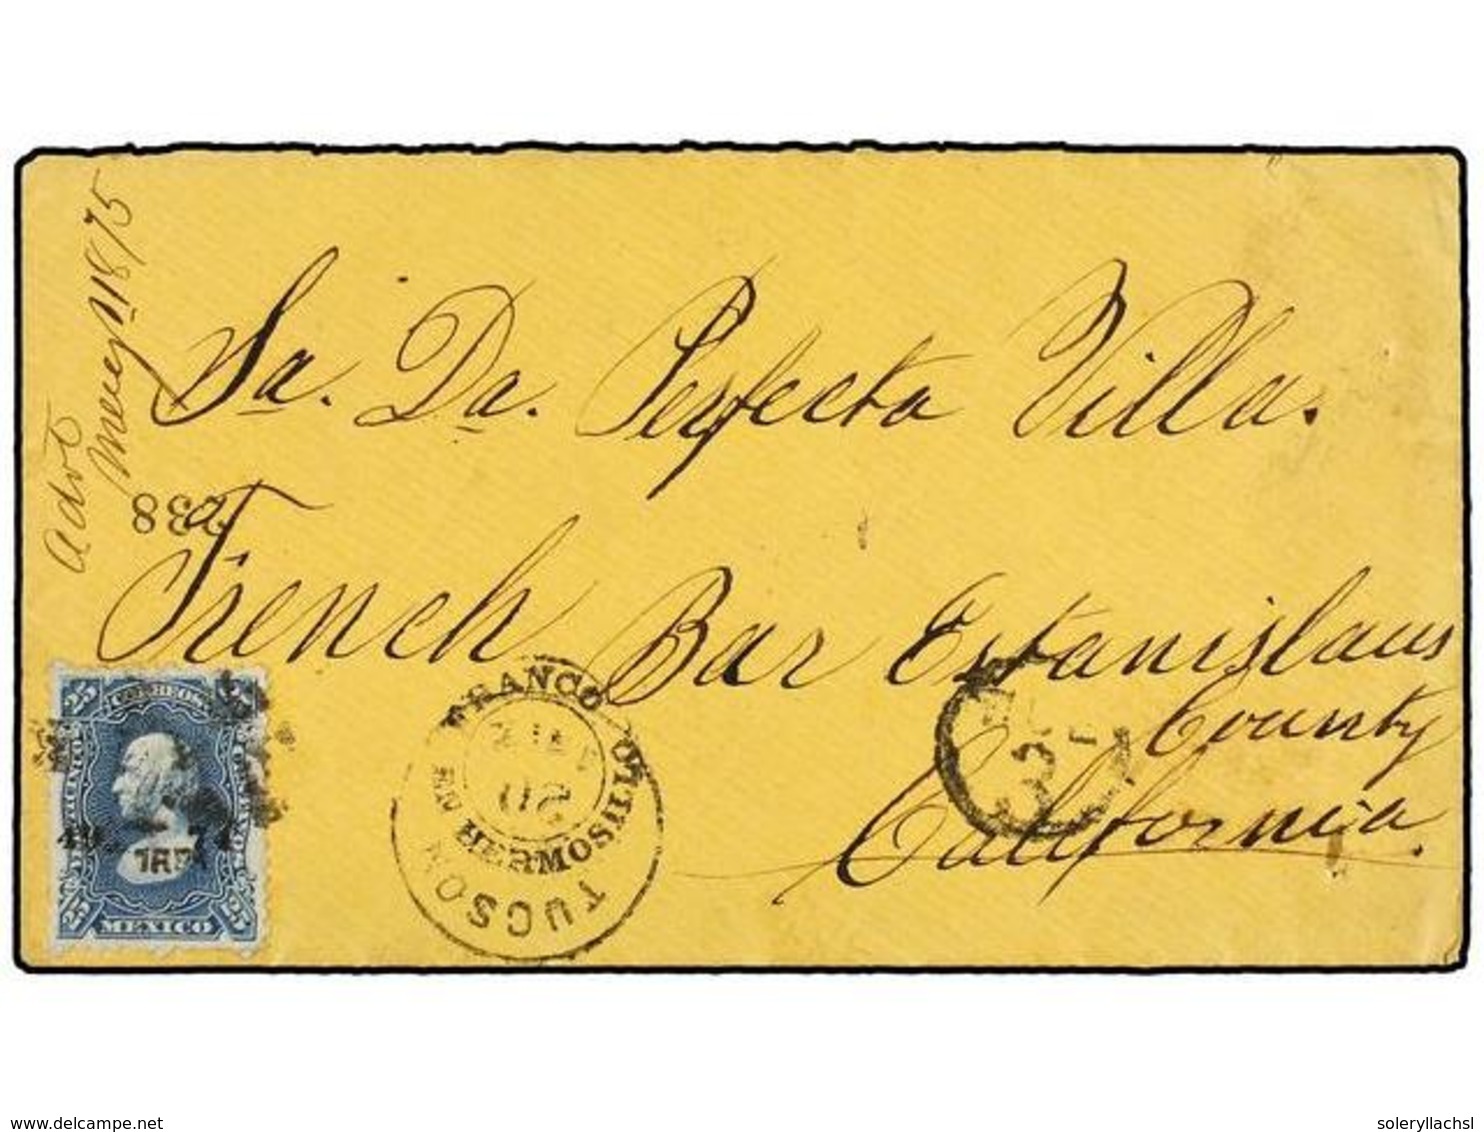 1875
Sa. Da. Perfecta Villa.
French Bar Estanislaus
County
California.
238
25 CORREOS 25
MEXICO
25 25
FRANCO EN HERMOSILLO
TUCSON
delcampe.net
soleryllachsl